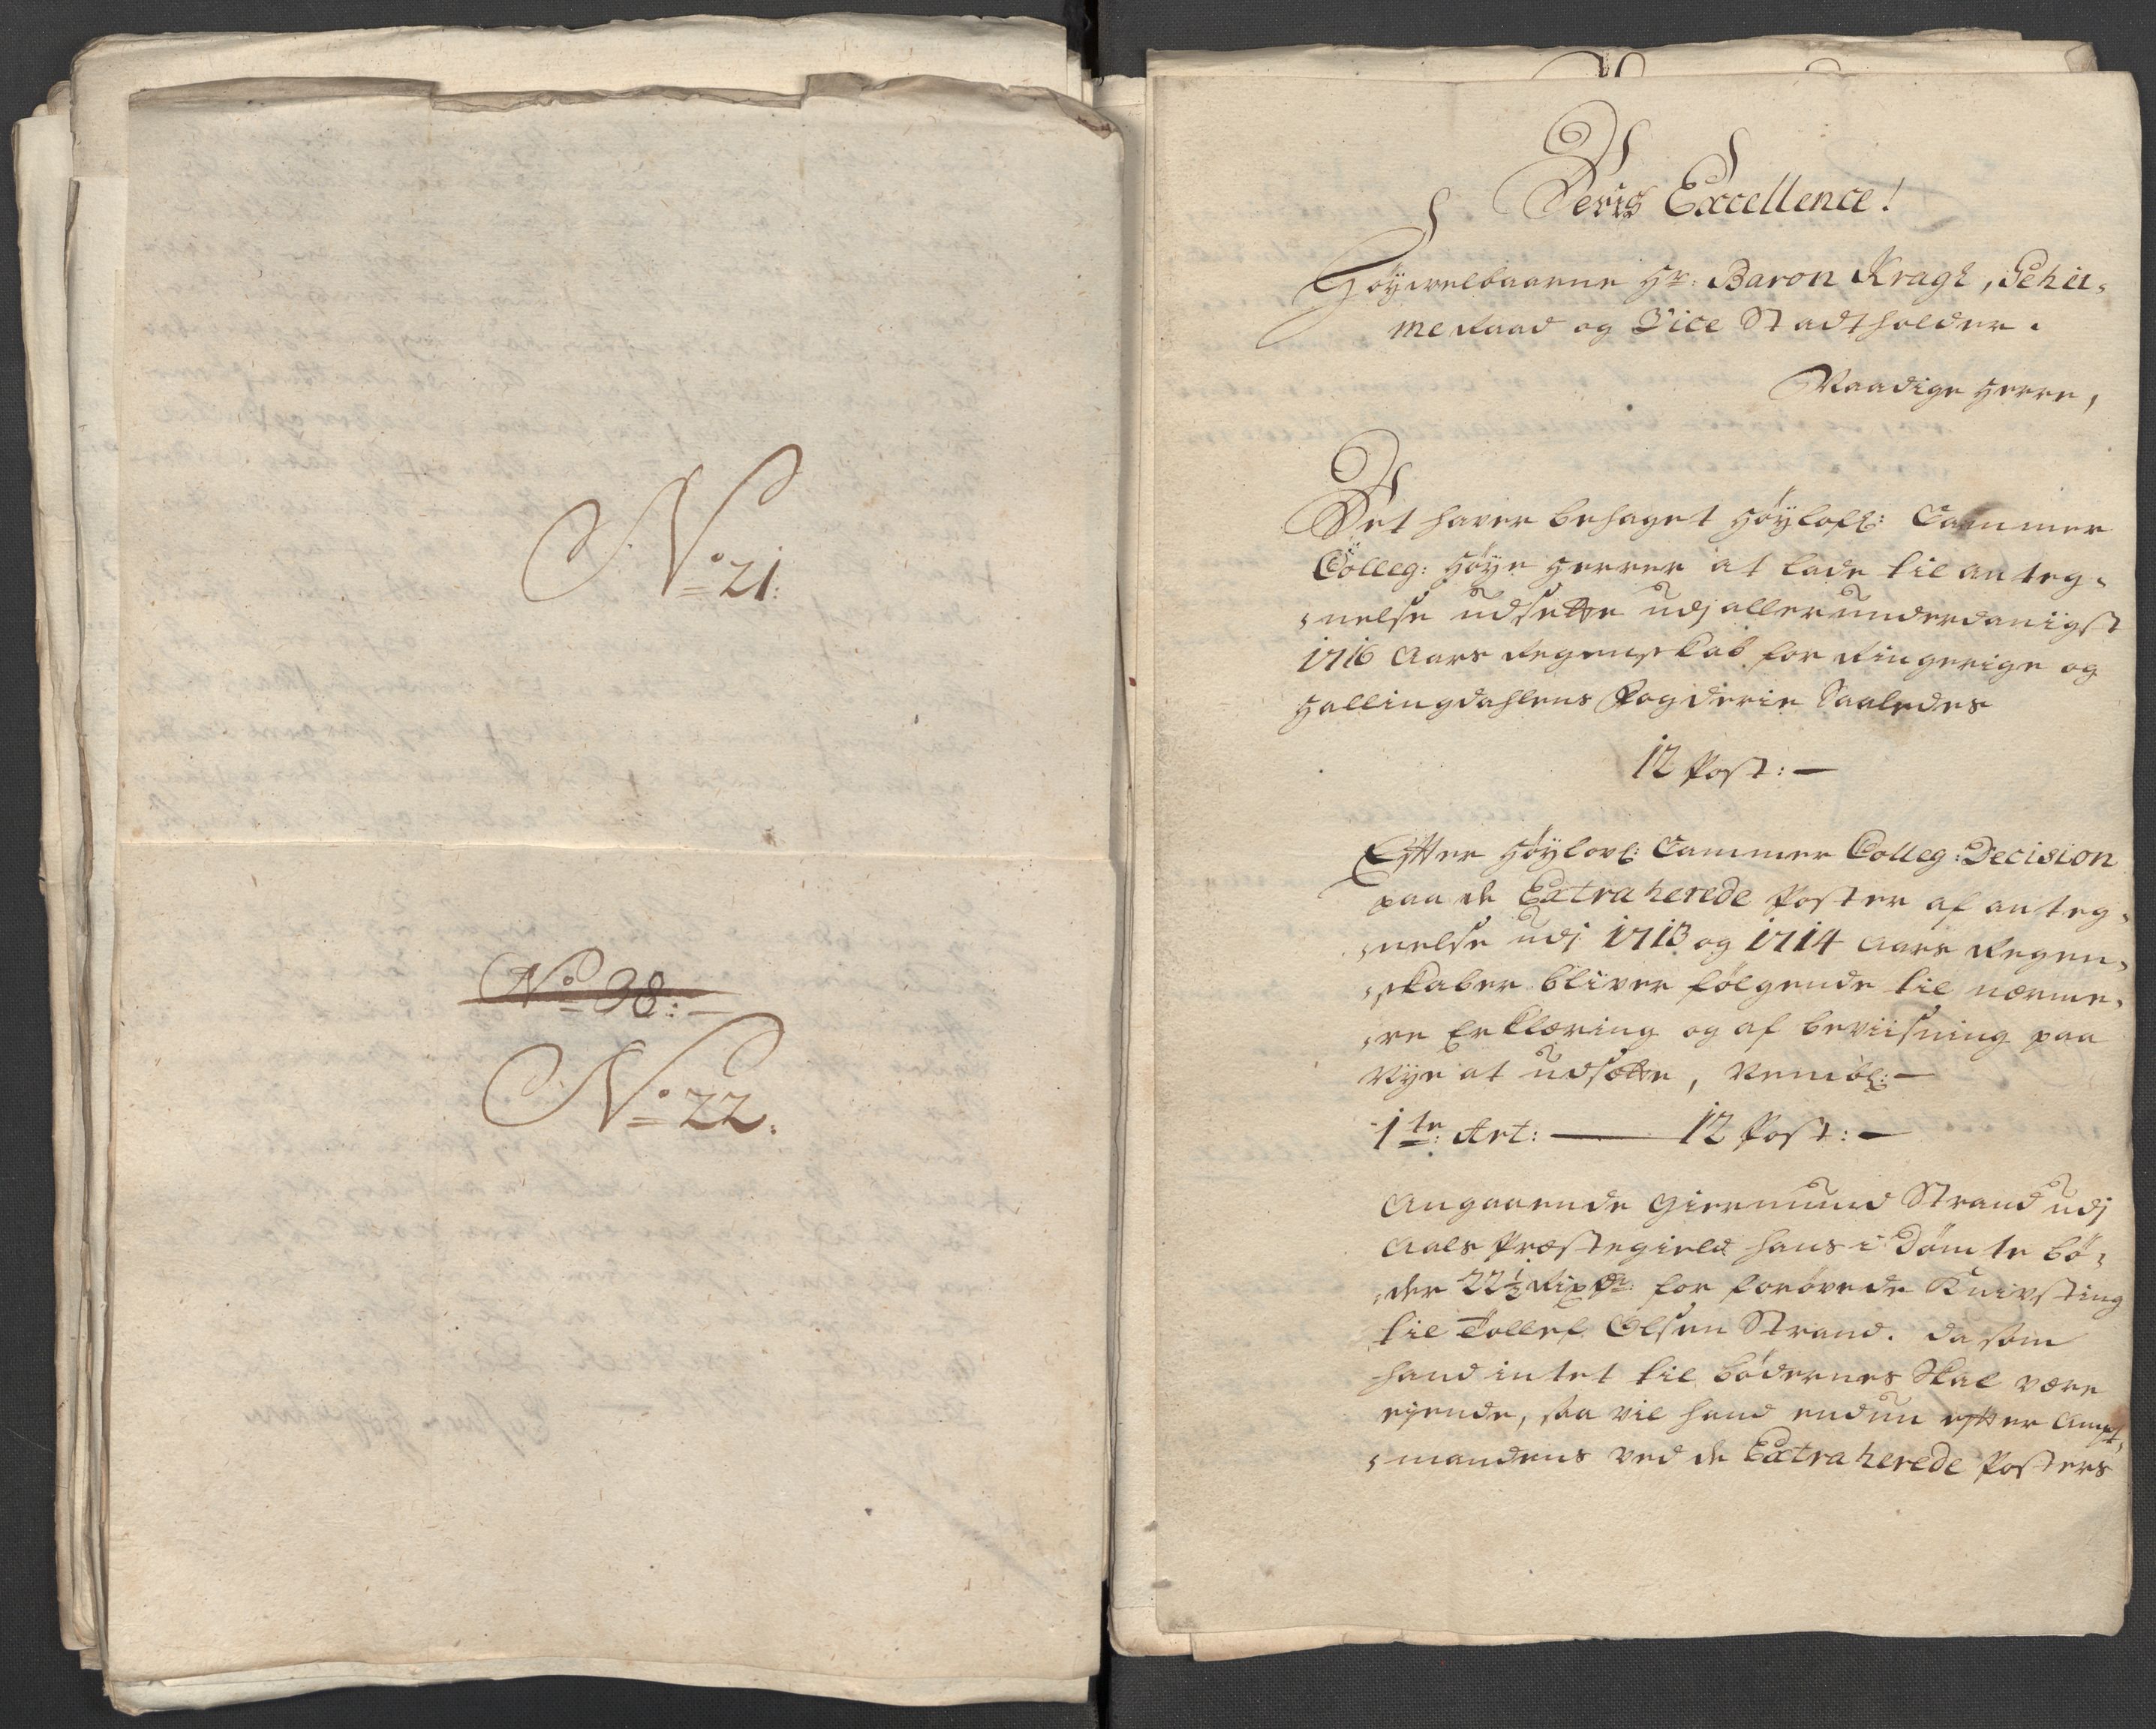 No 21:
No 38:
No 22.
Deris Excellence!
Höyvelbaarne Hr: Baron Kragh, Gehei-
me Raad og Vice Stadtholder.
Naadige Herre,
Det haver behaget Höylofl: Cammer
Colleg: Höye Herrer at lade til anteg-
nelse udsette udj allerunderdanigst
1716 Aars Regenskab for Ringerige og
Hallingdahlens Fogderie Saaledes
12 Post: —
Effter Höylovl: Cammer Colleg: Decision
paa de Extraherede Poster af anteg-
nelse udj 1713 og 1714 Aars Regen-
skaber bliver følgende til nærme-
re Erklæring og af beviisning paa
Nye at udsætte, Nembl: —
1te: Art: — 12 Post: —
Angaaende Giermund Strand udj
Aals Præstegield hans i dömte bö-
der 22½ Rixdr: for forövede Knivsting
til Tollef Olsen Strand. da som
hand intet til bödernes Skal være
ejende, saa vil hand endnu effter Ampt-
mandens ved de Extraherede Posters